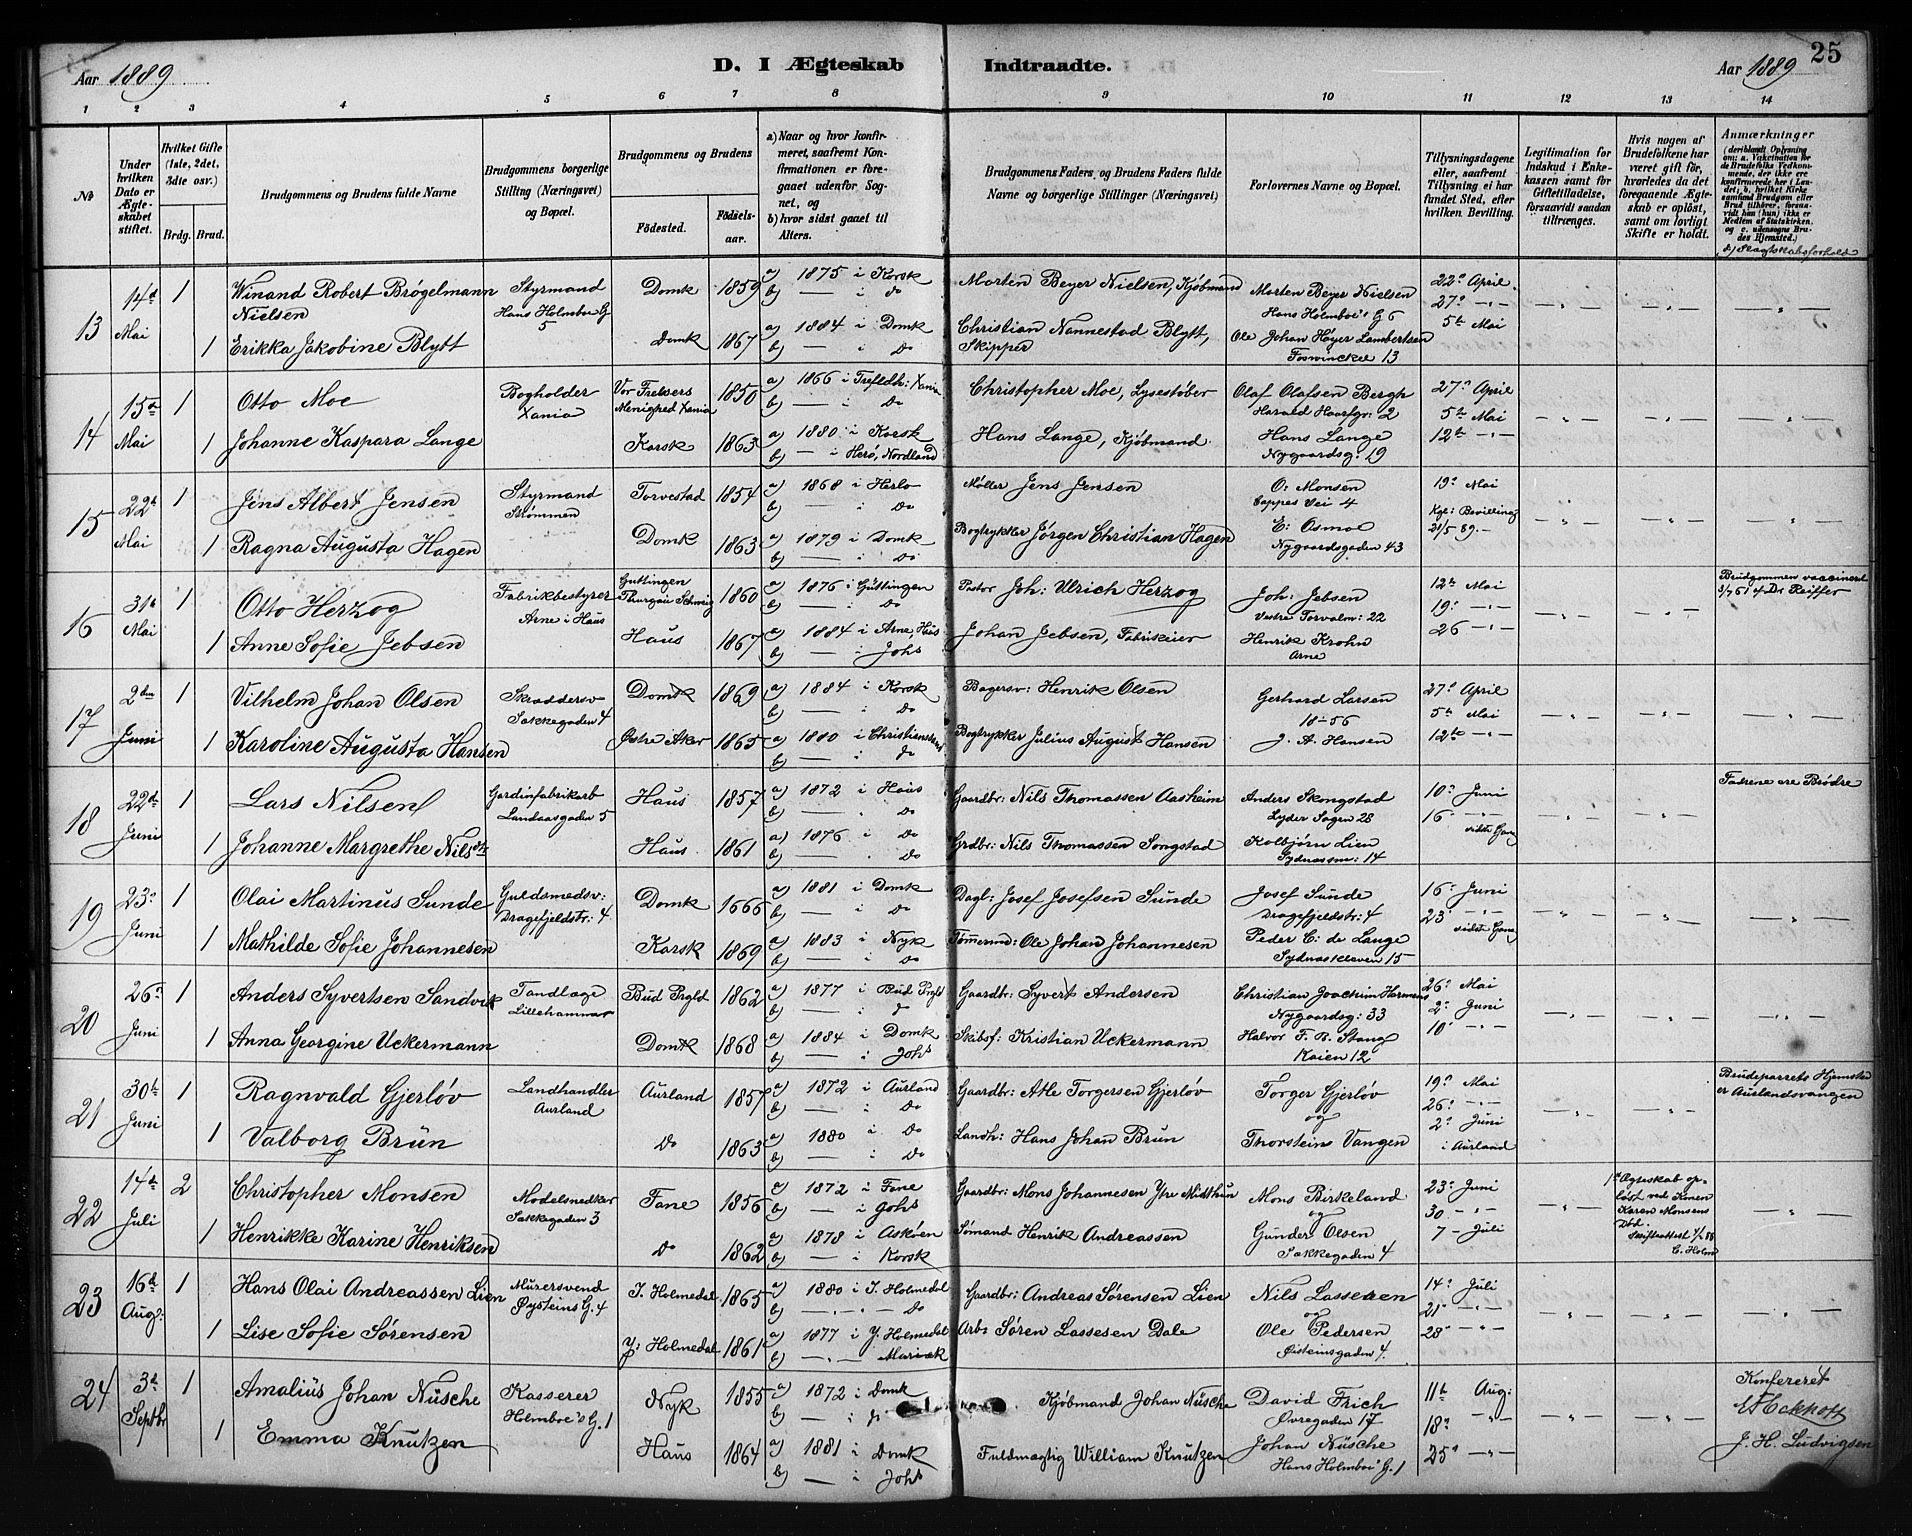 25
Aar 1889
D. I Ægteskab Indtraadte.
Aar 1889
1 2 3 4 5 6 7 8 9 10 11 12 13 14
No
Under hvilken Dato er Ægteskabet stiftet.
Hvilket Gifte (1ste, 2det, 3die osv.)
Brdg. Brud.
Brudgommens og Brudens fulde Navne
Brudgommens borgerlige Stilling (Næringsvei) og Bopæl.
Brudgommens og Brudens
Fødested.
Fødselsaar.
a) Naar og hvor konfirmeret, saafremt Konfirmationen er foregaaet udenfor Sognet, og
b) hvor sidst gaaet til Alters.
Brudgommens Faders og Brudens Faders fulde Navne og borgerlige Stillinger (Næringsvei)
Forlovernes Navne og Bopæl.
Tillysningsdagene eller, saafremt Tillysning ei har fundet Sted, efter hvilken Bevilling.
Legitimation for Indskud i Enkekassen samt for Giftetilladelse, forsaavidt saadan tiltrænges.
Hvis nogen af Brudefolkene har været gift før, hvorledes da det foregaaende Ægteskab er opløst, samt om lovligt Skifte er holdt.
Anmærkninger (deriblandt Oplysning om: a. Vaksination for de Brudefolks Vedkommende, der ikke ere konfirmerede her i Landet; b. hvilket Kirkesamfund Brudgom eller Brud tilhører, forsaavidt han (hun) ikke er Medlem af Statskirken, og c. udensogns Brudes Hjemsted.)
d) Slægtskabsforhold
13 14d Mai 1 Winand Robert Brøgelmann Nielsen Styrmand Hans Holmboe G 5 Domk 1859 a) 1875 i Korsk b) — i Do Morten Beyer Nielsen, Kjøbmand Morten Beyer Nielsen Hans Holmboe's G 6 22d April 27d -"- 5te Mai
1 Erikka Jakobine Blytt Domk 1867 a) 1884 i Domk b) — i Do Christian Nannestad Blytt, Skipper Ole Johan Høyer Lambertsen Foswinckel 13
14 15d Mai 1 Otto Moe Bogholder Xania Vor Frelsers Menighed Xania 1850 a) 1866 i Trefldh: Xania b) — i Do Christopher Moe, Lysestøber Olaf Olafsen Bergh Harald Haarfgr: 2 27d April 5te Mai 12te -"-
1 Johanne Kaspara Lange Korsk 1863 a) 1880 i Korsk b) — i Herø, Nordland Hans Lange, Kjøbmand Hans Lange Nygaardsg: 19
15 22d Mai 1 Jens Albert Jensen Styrmand Strømmen Torvestad 1854 a) 1868 i Herlo b) — i Do Møller Jens Jensen O: Monsen Cappes Vei 4 19d Mai Kgl: Bevilling 21/5 89
1 Ragna Augusta Hagen Domk 1863 a) 1879 i Domk b) — i Do Bogtrykker Jørgen Christian Hagen E: Osmoe Nygaardsgaden 43
16 31te Mai 1 Otto Herzog Fabrikbestyrer Arne i Haus Guttingen Thurgau Schweiz 1860 a) 1876 i Güttingen b) — i Do Pastor Joh: Ulrich Herzog Joh: Jebsen Vestre Torvalm: 22 12te Mai 19d -"- 26 -"- Brudgommen vaccineret 3/7 61 af Dr Reiffer
1 Anne Sofie Jebsen Haus 1867 a) 1884 i Arne, Haus b) — i Johs Johan Jebsen, Fabrikeier Henrik Krohn Arne
17 2den Juni 1 Vilhelm Johan Olsen Skræddersv Sakkegaden 4 Domk 1869 a) 1884 i Korsk b) — i Do Bagersv: Henrik Olsen Gerhard Larsen 18-56 27d April 5te Mai 12te -"-
1 Karoline Augusta Hansen Østre Aker 1865 a) 1880 i b) — i Do Bogtrykker Julius August Hansen J. A. Hansen
18 22de Juni 1 Lars Nilsen Gardinfabrikarb Landaasgaden 5 Haus 1857 a) 1872 i Haus b) — i Do Gaardbr: Nils Thomassen Aasheim Anders Skongstad Lyder Sagen 28 10d Juni 16 -"- sidste Gang Fædrene ere Brødre
1 Johanne Margrethe Nilsdtr Haus 1861 a) 1876 i Do b) — i Do Grdbr: Nils Thomassen Songstad Kolbjørn Lien Sydnæssm: 14
19 23d Juni 1 Olai Martinus Sunde Guldsmedsv: Dragefjeldstr: 4 Domk 1666 a) 1881 i Domk b) — i Do Dagl: Josef Josefsen Sunde Josef Sunde Dragefjeldstr: 4 16d Juni 23 -"- sidste Gang
1 Mathilde Sofie Johannesen Korsk 1869 a) 1883 i Nyk b) — i Do Tømermd: Ole Johan Johannesen Peder C: de Lange Sydnæskleven 15
20 26d Juni 1 Anders Syvertsen Sandvik Tandlæge Lillehammer Bud Prgld 1862 a) 1877 i Bud Prgld b) — i d Gaardbr: Syvert Andersen Christian Joachim Harmens Nygaardsg: 33 26d Mai 2d Juni 10d -"-
1 Anna Georgine Uckermann Domk 1868 a) 1884 i Domk b) — i Johs Skibsf: Kristian Uckermann Halvor F. B. Stang Kaien 12
21 30te Juni 1 Ragnvald Gjerløv Landhandler Aurland Aurland 1857 a) 1872 i Aurland b) — i Do Gaardbr: Atle Torgersen Gjerløv Torger Gjerløv og 19d Mai 26d -"- 2d Juni i Aurland Brudeparrets Hjemsted er Aurlandsvangen
1 Valborg Brün Do 1863 a) 1880 i Do b) — i Do Landh: Hans Johan Brün Thorstein Vangen
22 14de Juli 2 Christopher Monsen Modelsnedker Sakkegaden 3 Fane 1856 a) 1872 i Fane b) — i Johs Gaardbr: Mons Johannesen Ytre Midthun Mons Birkeland og 23d Juni 30 -"- 7 - Juli 1te Ægteskab opløst ved Konen Karen Monsens Død. Skifteattest 1/2 88 C. Holm
1 Henrikke Karine Henriksen Do 1862 a) 1878 i Askøen b) — i Korsk Sømand Henrik Andreassen Gunder Olsen Sakkegaden 4
23 16d Aug: 1 Hans Olai Andreassen Lien Murersvend Øysteins G. 4 I. Holmedal 1865 a) 1880 i I. Holmedal b) — Do Gaardbr: Andreas Sørensen Lien Nils Lassesen og 14d Juli 21 -"- 28 -"-
1 Lise Sofie Sørensen Y: Holmedal 1861 a) 1877 i Y. Holmedal b) — Mariæk Arb: Søren Lassesen Dale Ole Pedersen Øisteinsgaden 4.
24 3d Septbr 1 Amalius Johan Nüsche Kasserer Holmboe's G. 1 Nyk 1855 a) 1872 i Domk b) — i d Kjøbmand Johan Nüsche David Frich Øvregaden 17 11te Aug: 18d -"- 25d -"- Konfereret J. H. Ludvigsen
1 Emma Knutzen Haus 1864 a) 1881 i Domk b) — i Johs Fuldmægtig William Knutzen Johan Nüsche Hans Holmboe's G. 1